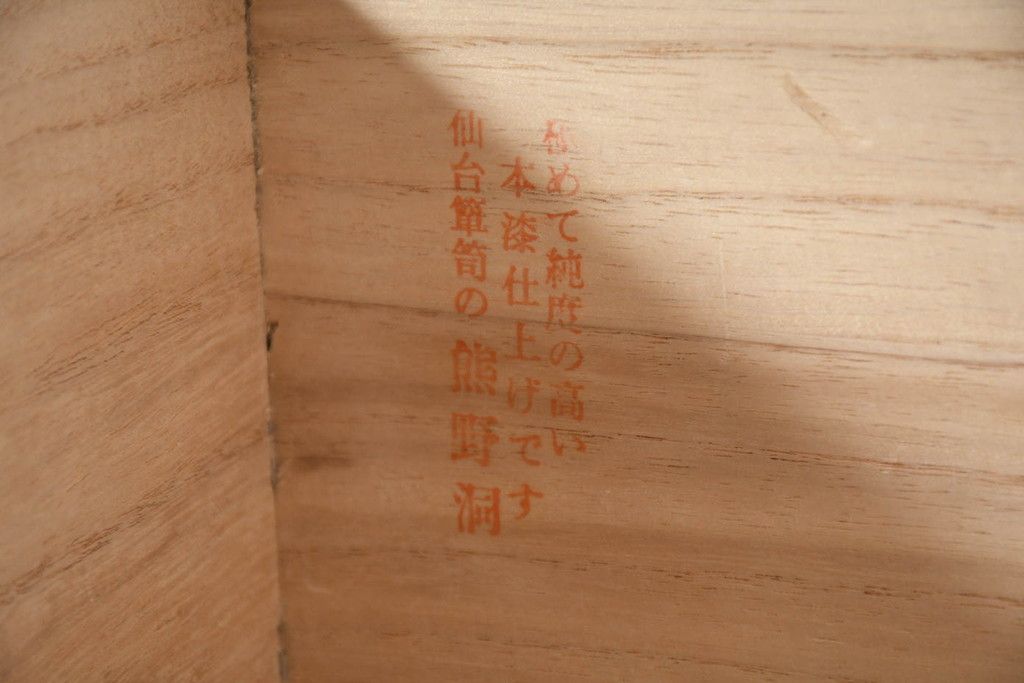 極めて純度の高い
本漆仕上げです
仙台簞笥の熊野洞